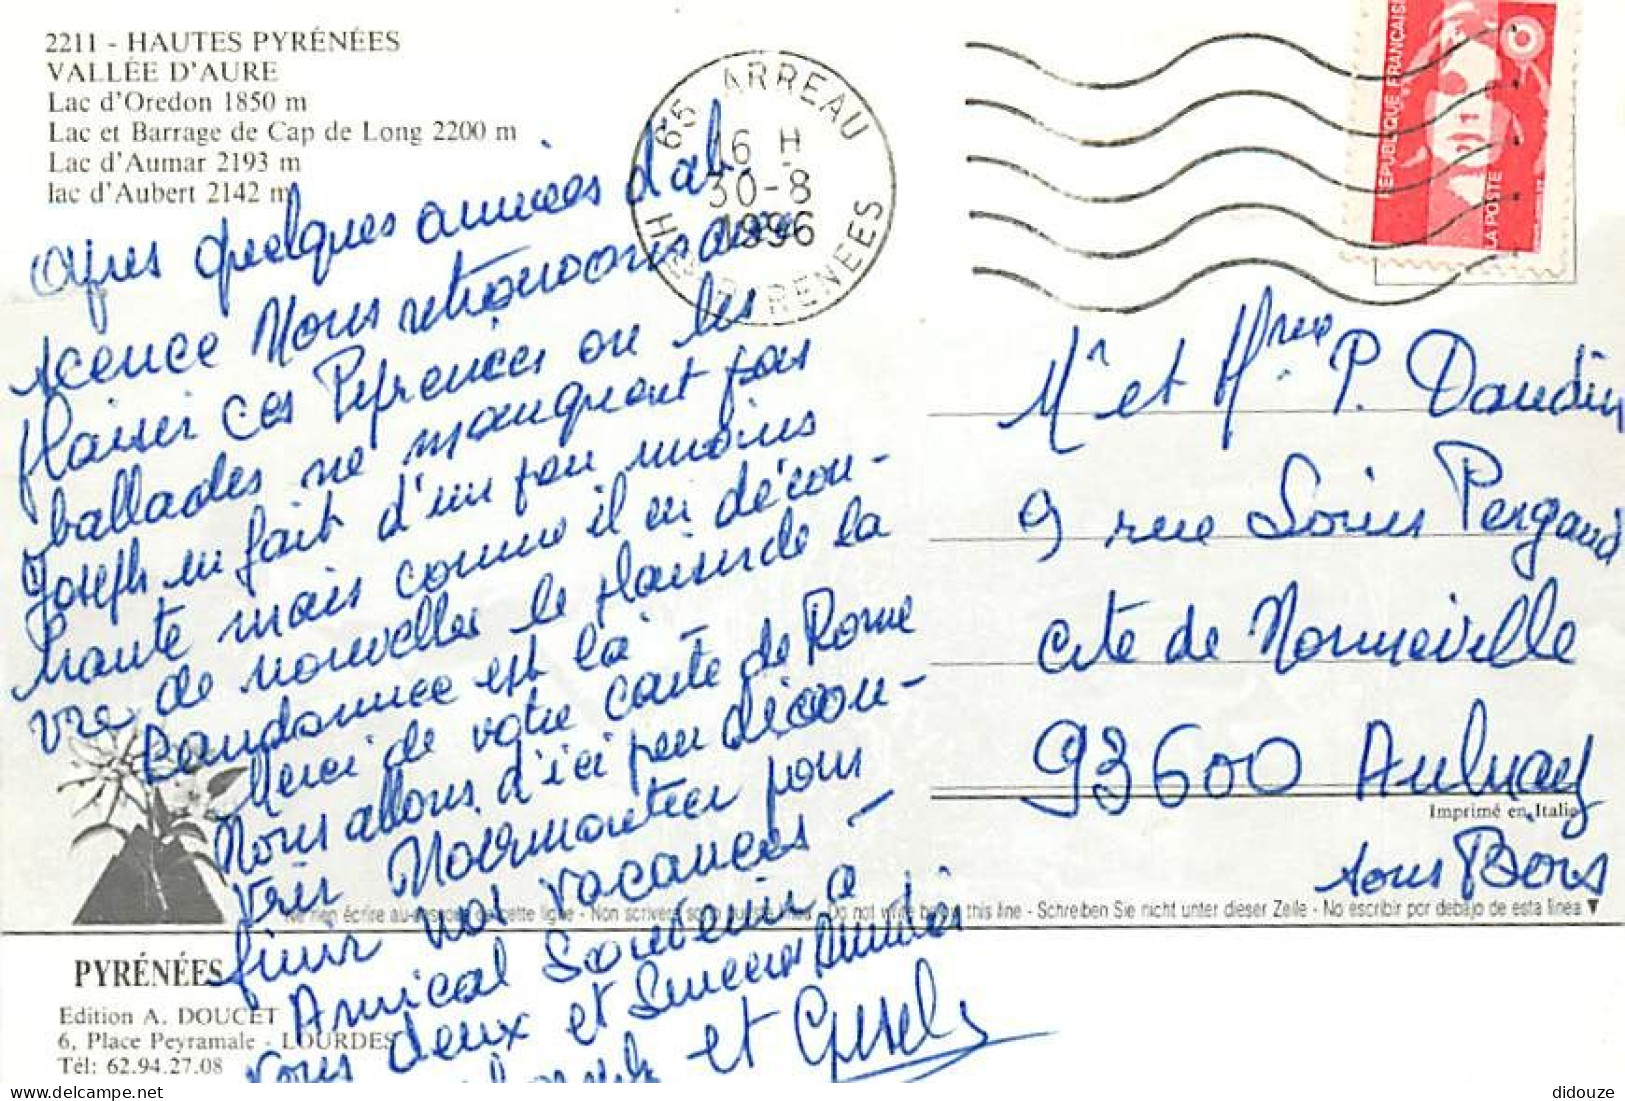 2211 - HAUTES PYRÉNÉES
VALLÉE D'AURE
Lac d'Oredon 1850 m
Lac et Barrage de Cap de Long 2200 m
Lac d'Aumar 2193 m
lac d'Aubert 2142 m
65 ARREAU
16 H
30-8
1996
HTES PYRENEES
REPUBLIQUE FRANÇAISE
LA POSTE
Apres quelques années d'ab
scence Nous retrouvons avec
plaisir ces Pyrénées ou les
ballades ne manquent pas
Joseph en fait d'un peu moins
haute mais comme il en décou-
vre de nouvelles le plaisir de la
Randonnee est là -
Merci de votre carte de Rome
Nous allons d'ici peu décou-
vrir Noirmoutier pour
finir nos vacances -
Amical Souvenir a
vous deux et Sinceres Amitiés
Joseph et Gisele
Mr et Mme P. Daudin
9 rue Louis Pergaud
Cite de Nonneville
93600 Aulnay
sous Bois
Imprimé en Italie
Ne rien écrire au-dessous de cette ligne - Non scrivere sotto questa linea - Do not write below this line - Schreiben Sie nicht unter dieser Zeile - No escribir por debajo de esta linea ▼
PYRÉNÉES
Edition A. DOUCET
6, Place Peyramale - LOURDES
Tél: 62.94.27.08
didouze